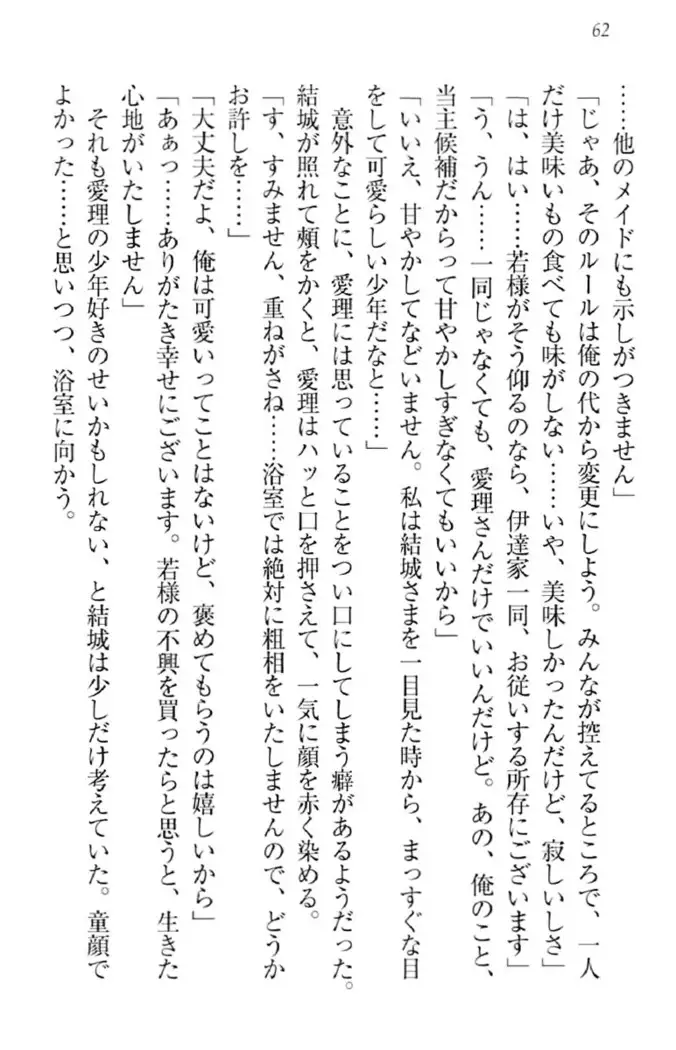 62
……他のメイドにも示しがつきません」
「じゃあ、そのルールは俺の代から変更にしよう。みんなが控えてるところで、一人
だけ美味いもの食べても味がしない……いや、美味しかったんだけど、寂しいしさ」
「は、はい……若様がそう仰るのなら、伊達家一同、お従いする所存にございます」
「う、うん……一同じゃなくても、愛理さんだけでいいんだけど。あの、俺のこと、
当主候補だからって甘やかしすぎなくてもいいから」
「いいえ、甘やかしてなどいません。私は結城さまを一目見た時から、まっすぐな目
をして可愛らしい少年だなと……」
意外なことに、愛理には思っていることをつい口にしてしまう癖があるようだった。
結城が照れて頬をかくと、愛理はハッと口を押さえて、一気に顔を赤く染める。
「す、すみません、重ねがさね……浴室では絶対に粗相をいたしませんので、どうか
お許しを……」
「大丈夫だよ、俺は可愛いってことはないけど、褒めてもらうのは嬉しいから」
「あぁっ……ありがたき幸せにございます。若様の不興を買ったらと思うと、生きた
心地がいたしません」
それも愛理の少年好きのせいかもしれない、と結城は少しだけ考えていた。童顔で
よかった……と思いつつ、浴室に向かう。